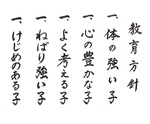 教育方針
一、体の強い子
一、心の豊かな子
一、よく考える子
一、ねばり強い子
一、けじめのある子